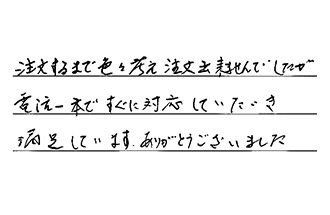 注文するまで色々考え注文出来ませんでしたが
電話一本ですぐに対応していただき
満足しています.ありがとうございました